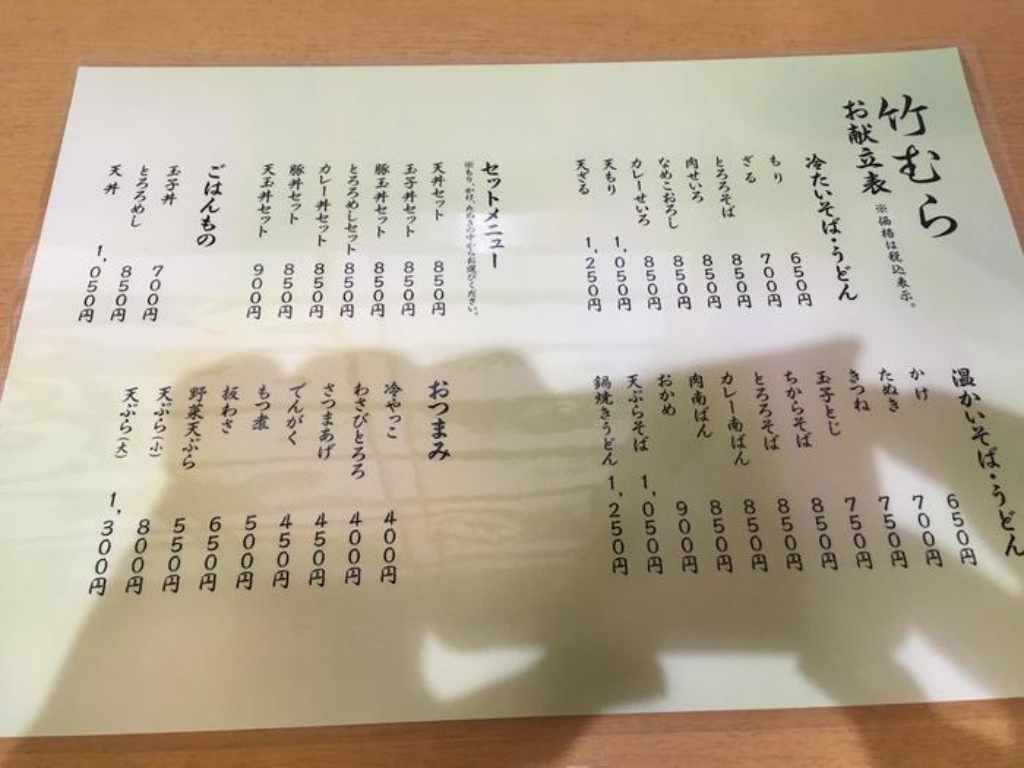 竹むら
お献立表 ※価格は税込表示。
冷たいそば・うどん
もり 650円
ざる 700円
とろろそば 850円
肉せいろ 850円
なめこおろし 850円
カレーせいろ 850円
天もり 1,050円
天ざる 1,250円
セットメニュー
※もり、かけ、たぬきの中からお選びください。
天丼セット 850円
玉子丼セット 850円
豚玉丼セット 850円
とろろめしセット 850円
カレー丼セット 850円
豚丼セット 850円
天玉丼セット 900円
ごはんもの
玉子丼 700円
とろろめし 850円
天丼 1,050円
温かいそば・うどん
かけ 650円
たぬき 700円
きつね 750円
玉子とじ 750円
ちからそば 850円
とろろそば 850円
カレー南ばん 850円
肉南ばん 850円
おかめ 900円
天ぷらそば 1,050円
鍋焼きうどん 1,250円
おつまみ
冷やっこ 400円
わさびとろろ 400円
さつまあげ 450円
でんがく 450円
もつ煮 500円
板わさ 650円
野菜天ぷら 550円
天ぷら(小) 800円
天ぷら(大) 1,300円